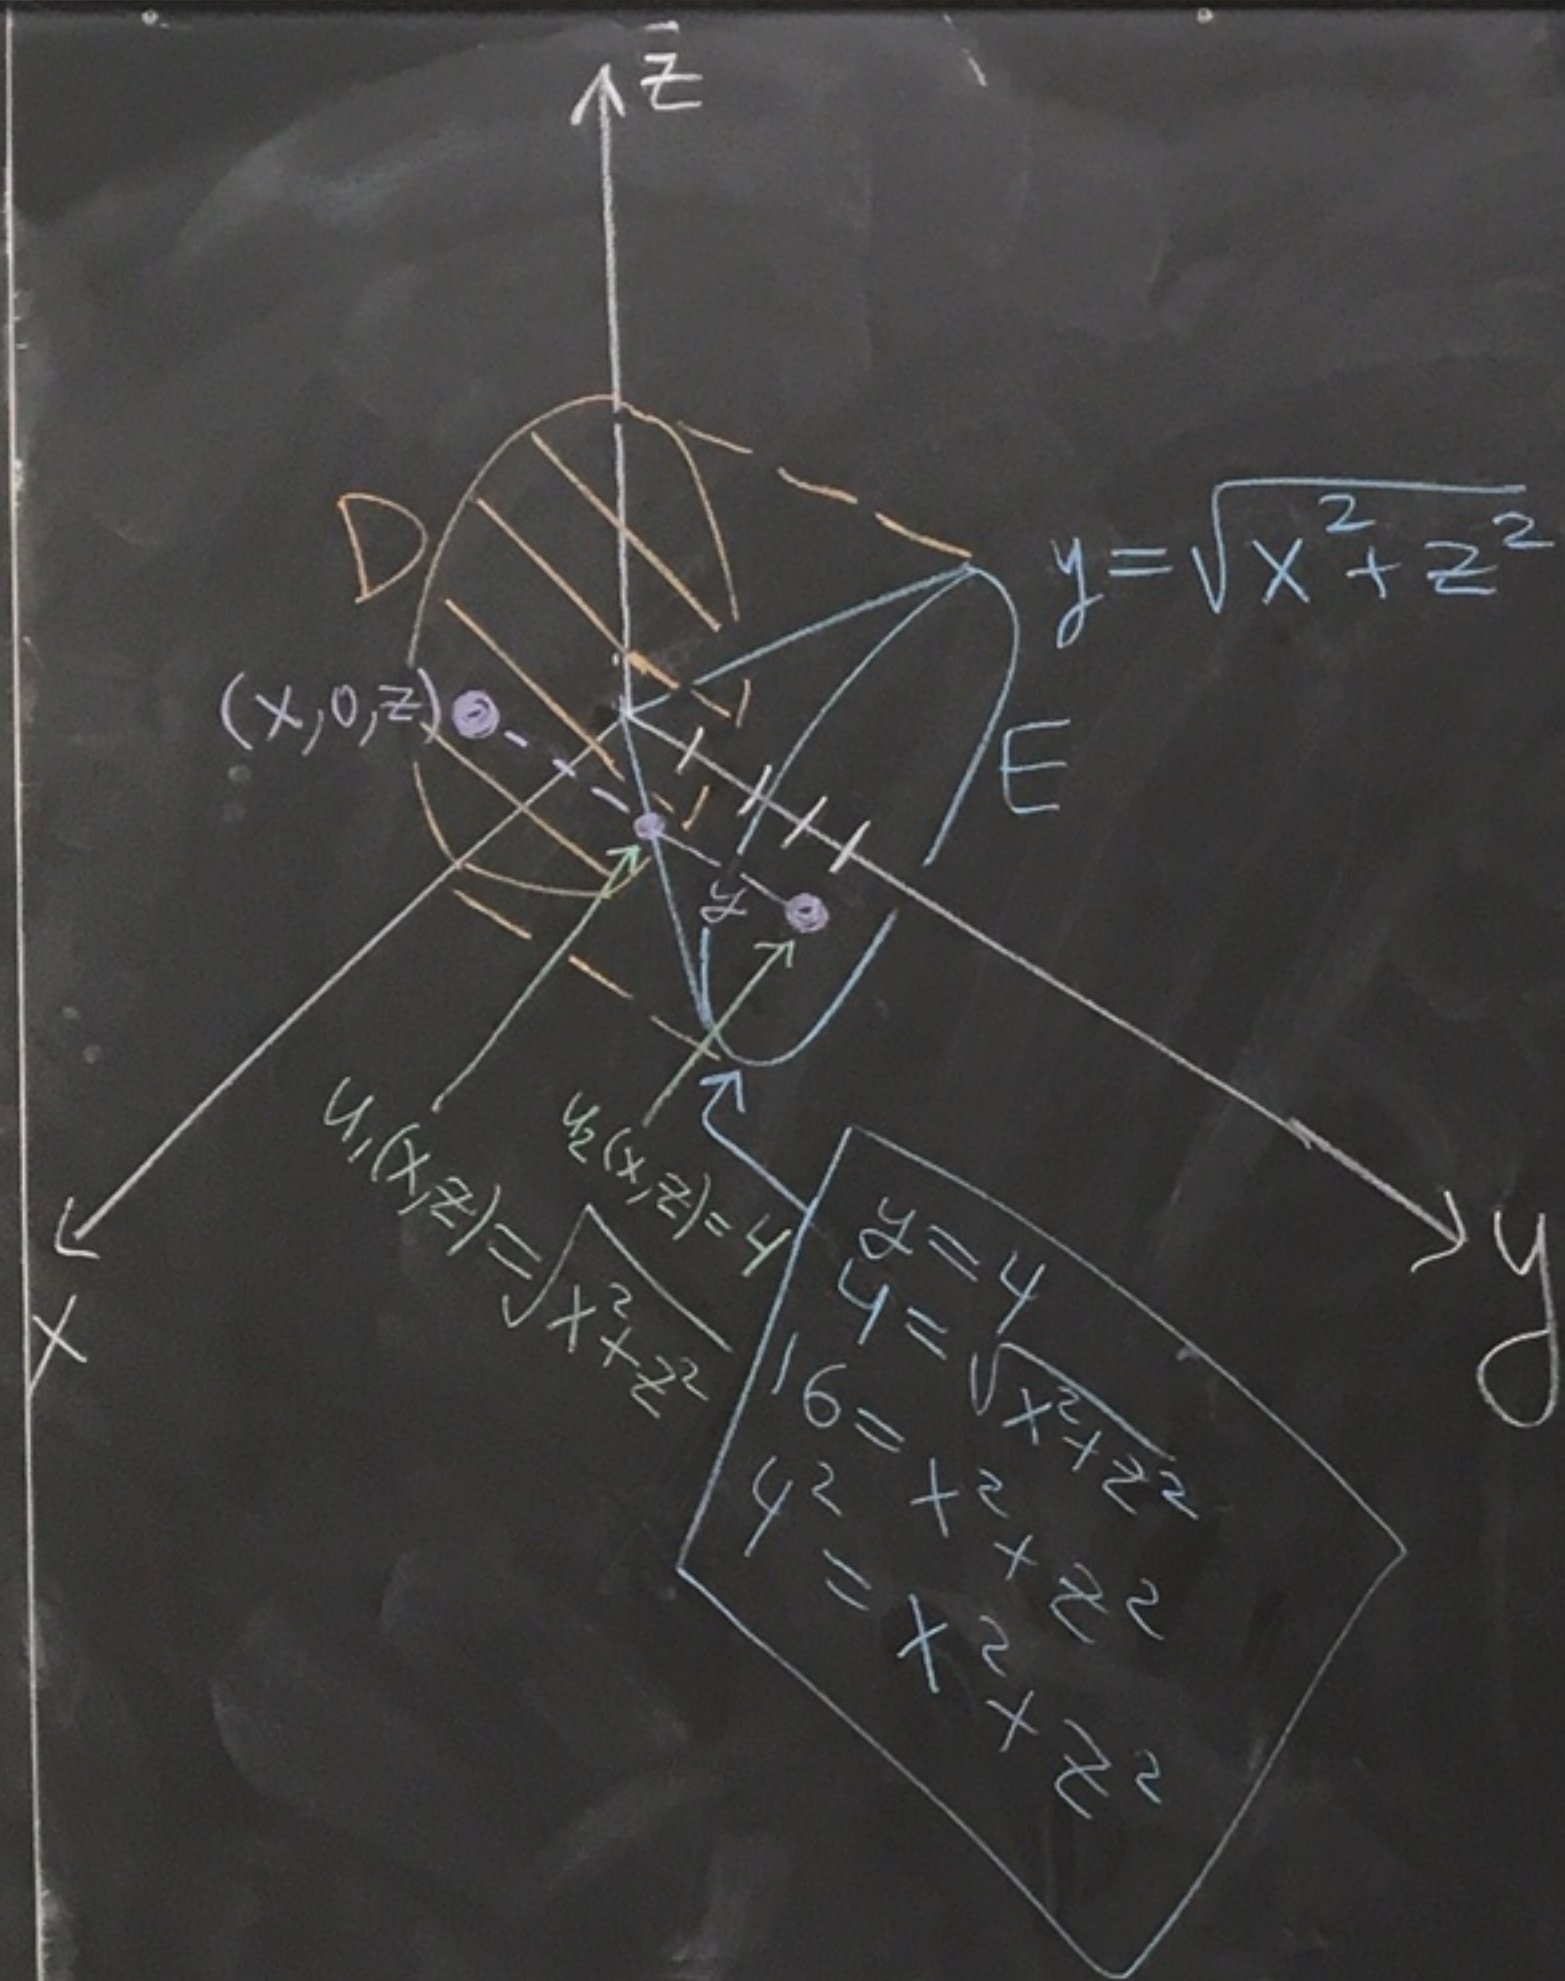 z
D
y = √(x² + z²)
(x, 0, z)
E
y
u₁(x, z) = √(x² + z²)
u₂(x, z) = 4
x
y
y = 4
4 = √(x² + z²)
16 = x² + z²
4² = x² + z²